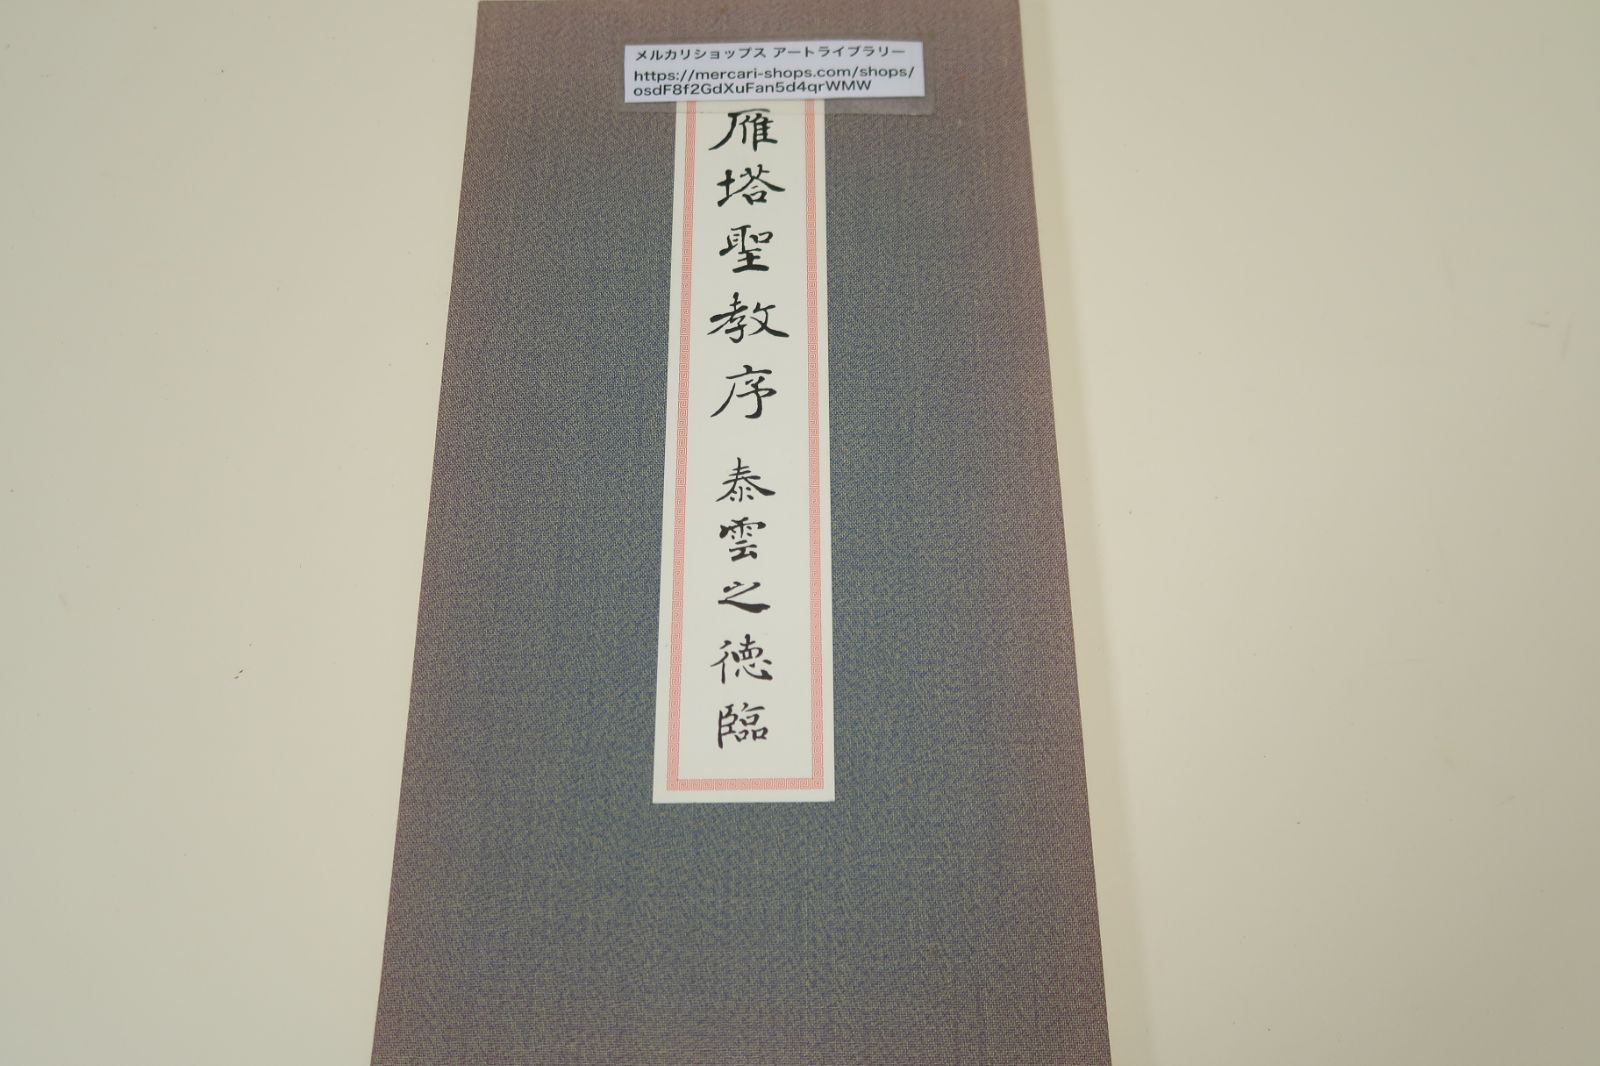 メルカリショップス アートライブラリー
https://mercari-shops.com/shops/
osdF8f2GdXuFan5d4qrWMW
雁塔聖教序 泰雲之徳臨